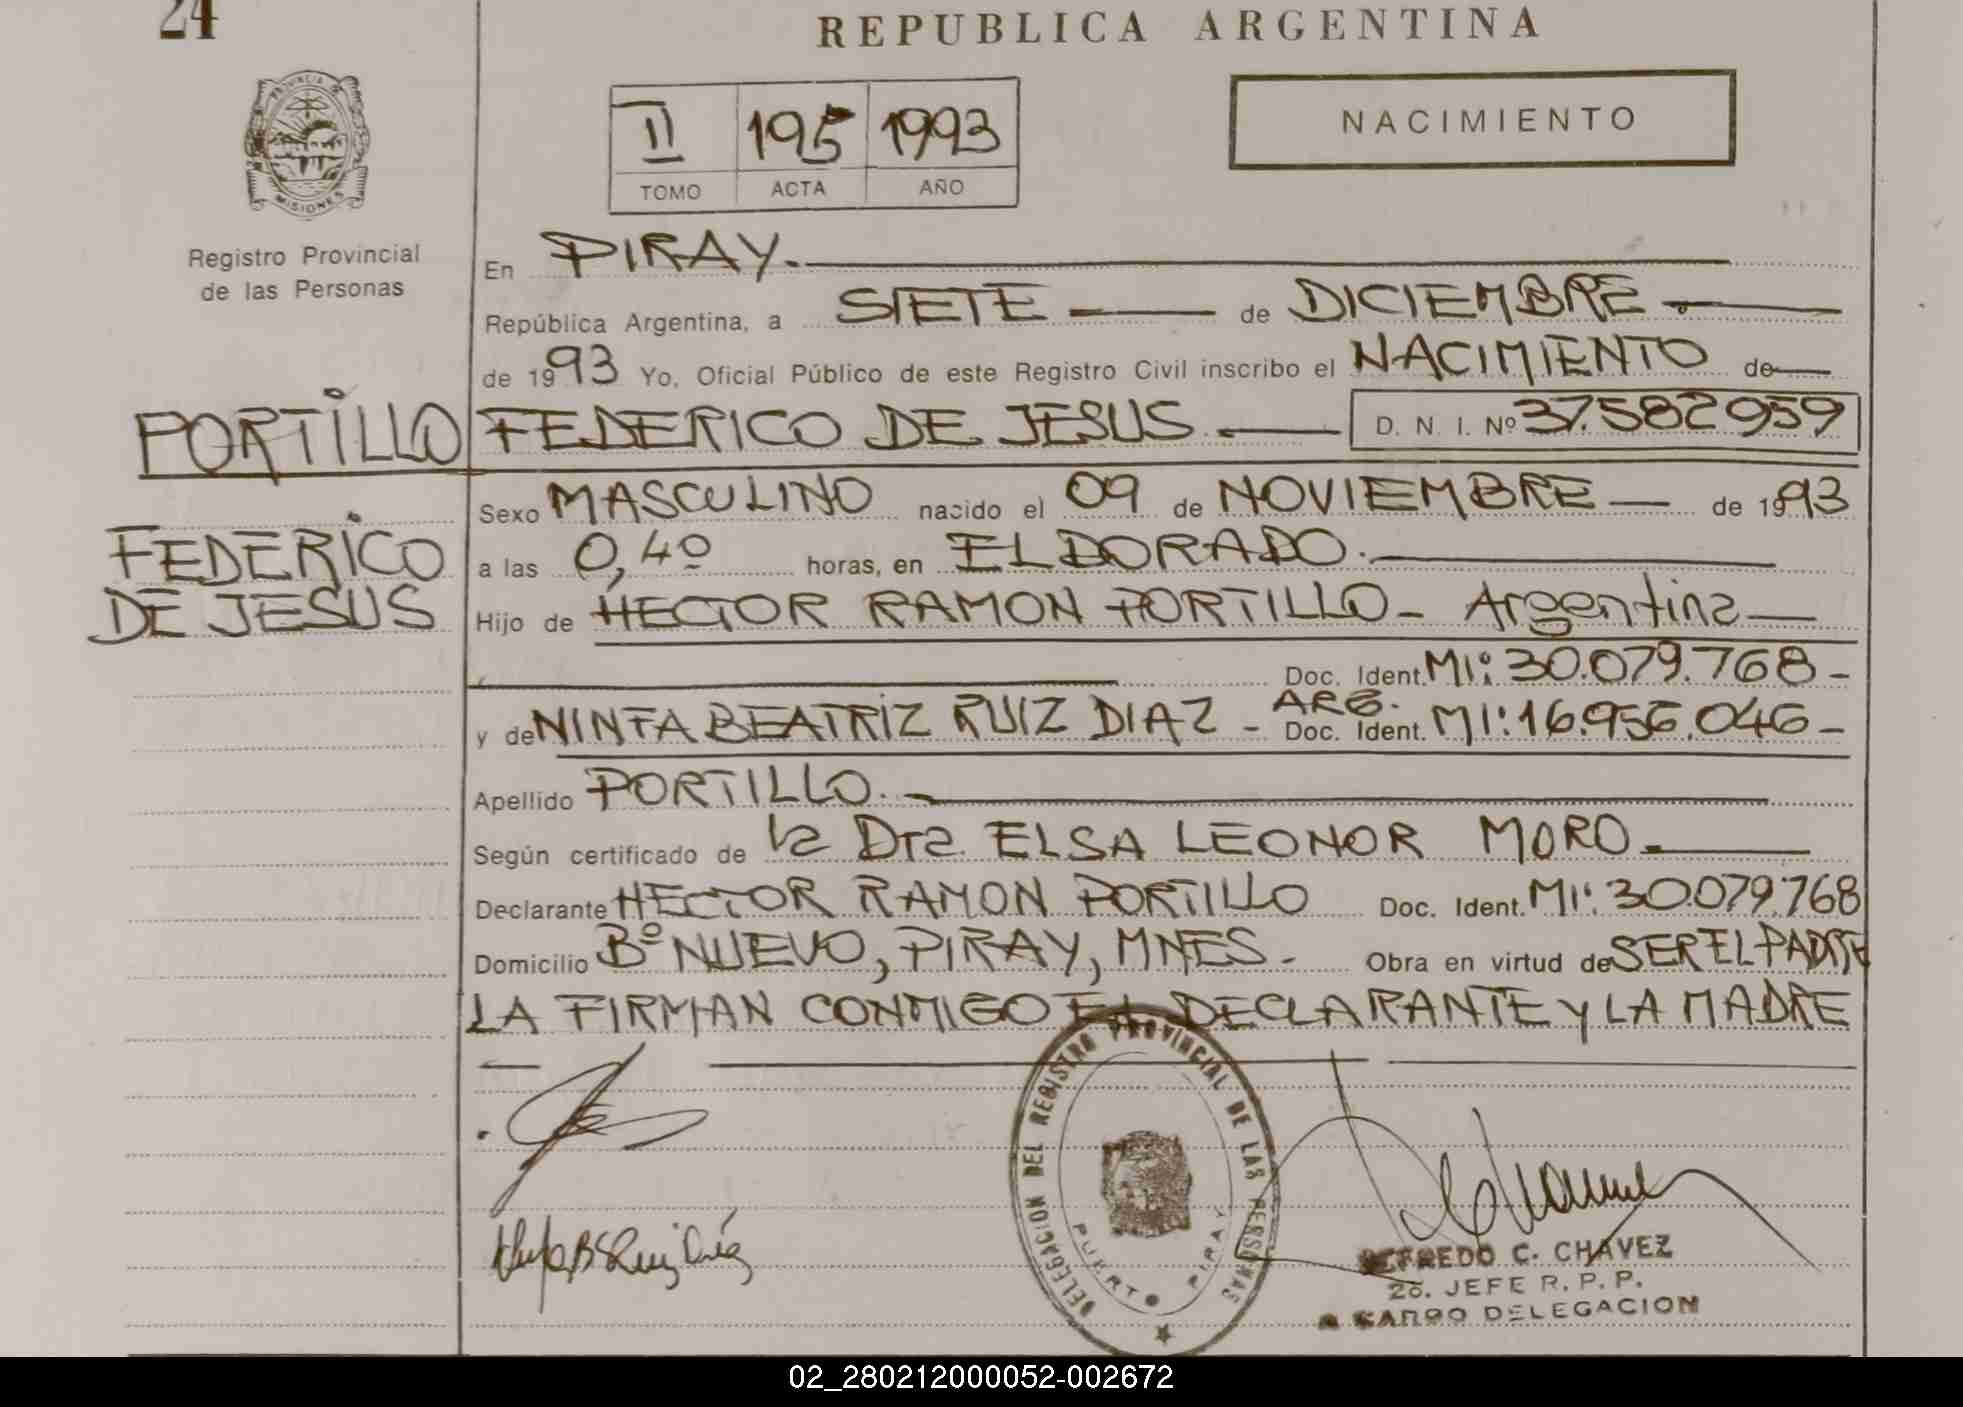 24
REPUBLICA ARGENTINA
PROVINCIA DE
MISIONES
II 195 1993
TOMO ACTA AÑO
NACIMIENTO
Registro Provincial
de las Personas
En PIRAY.
República Argentina, a SIETE de DICIEMBRE
de 1993 Yo, Oficial Público de este Registro Civil inscribo el NACIMIENTO de
PORTILLO FEDERICO DE JESUS. D. N. I. Nº 37.582959
FEDERICO
DE JESUS
Sexo MASCULINO nacido el 09 de NOVIEMBRE de 1993
a las 0,4º horas, en ELDORADO.
Hijo de HECTOR RAMON PORTILLO - Argentina
Doc. Ident. MI: 30.079.768 -
y de NINFA BEATRIZ RUIZ DIAZ - ARG. Doc. Ident. MI: 16.956.046 -
Apellido PORTILLO.
Según certificado de la Dra ELSA LEONOR MORO
Declarante HECTOR RAMON PORTILLO Doc. Ident. MI: 30.079.768
Domicilio Bº NUEVO, PIRAY, MNES. Obra en virtud de SER EL PADRE
LA FIRMAN CONMIGO EL DECLARANTE y LA MADRE
DELEGACION DEL REGISTRO PROVINCIAL DE LAS PERSONAS
PUERTO PIRAY
ALFREDO C. CHAVEZ
2o. JEFE R. P. P.
A CARGO DELEGACION
02_280212000052-002672